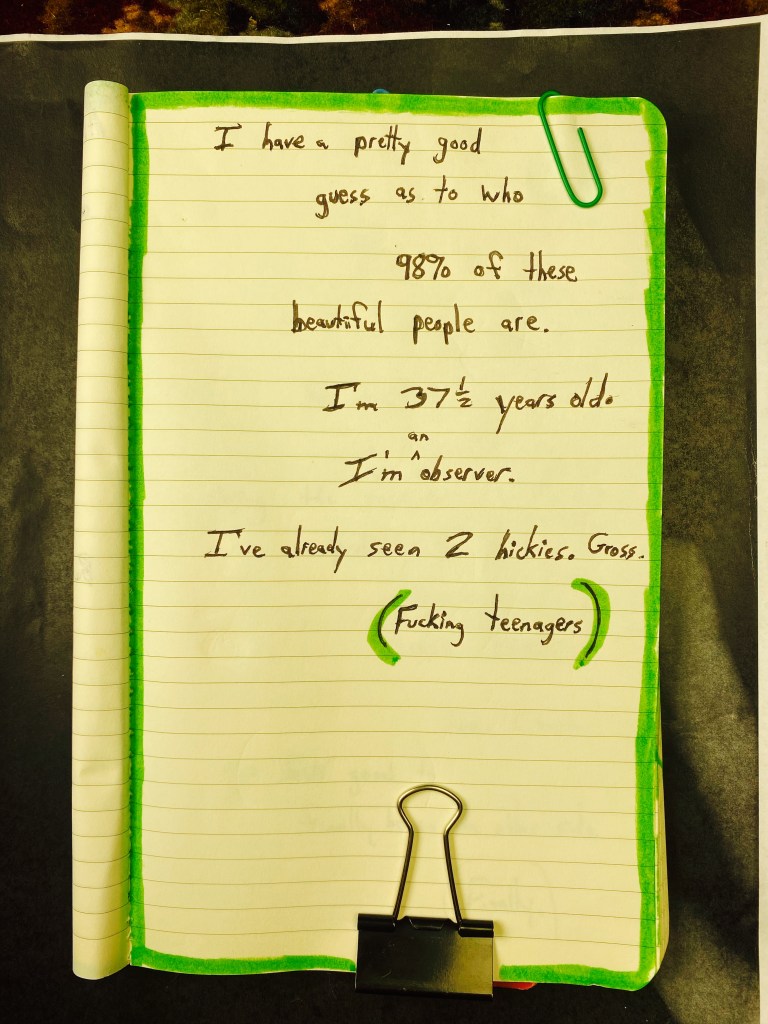 I have a pretty good
guess as to who
98% of these
beautiful people are.
I'm 37½ years old.
an
I'm ^ observer.
I've already seen 2 hickies. Gross.
(Fucking teenagers)